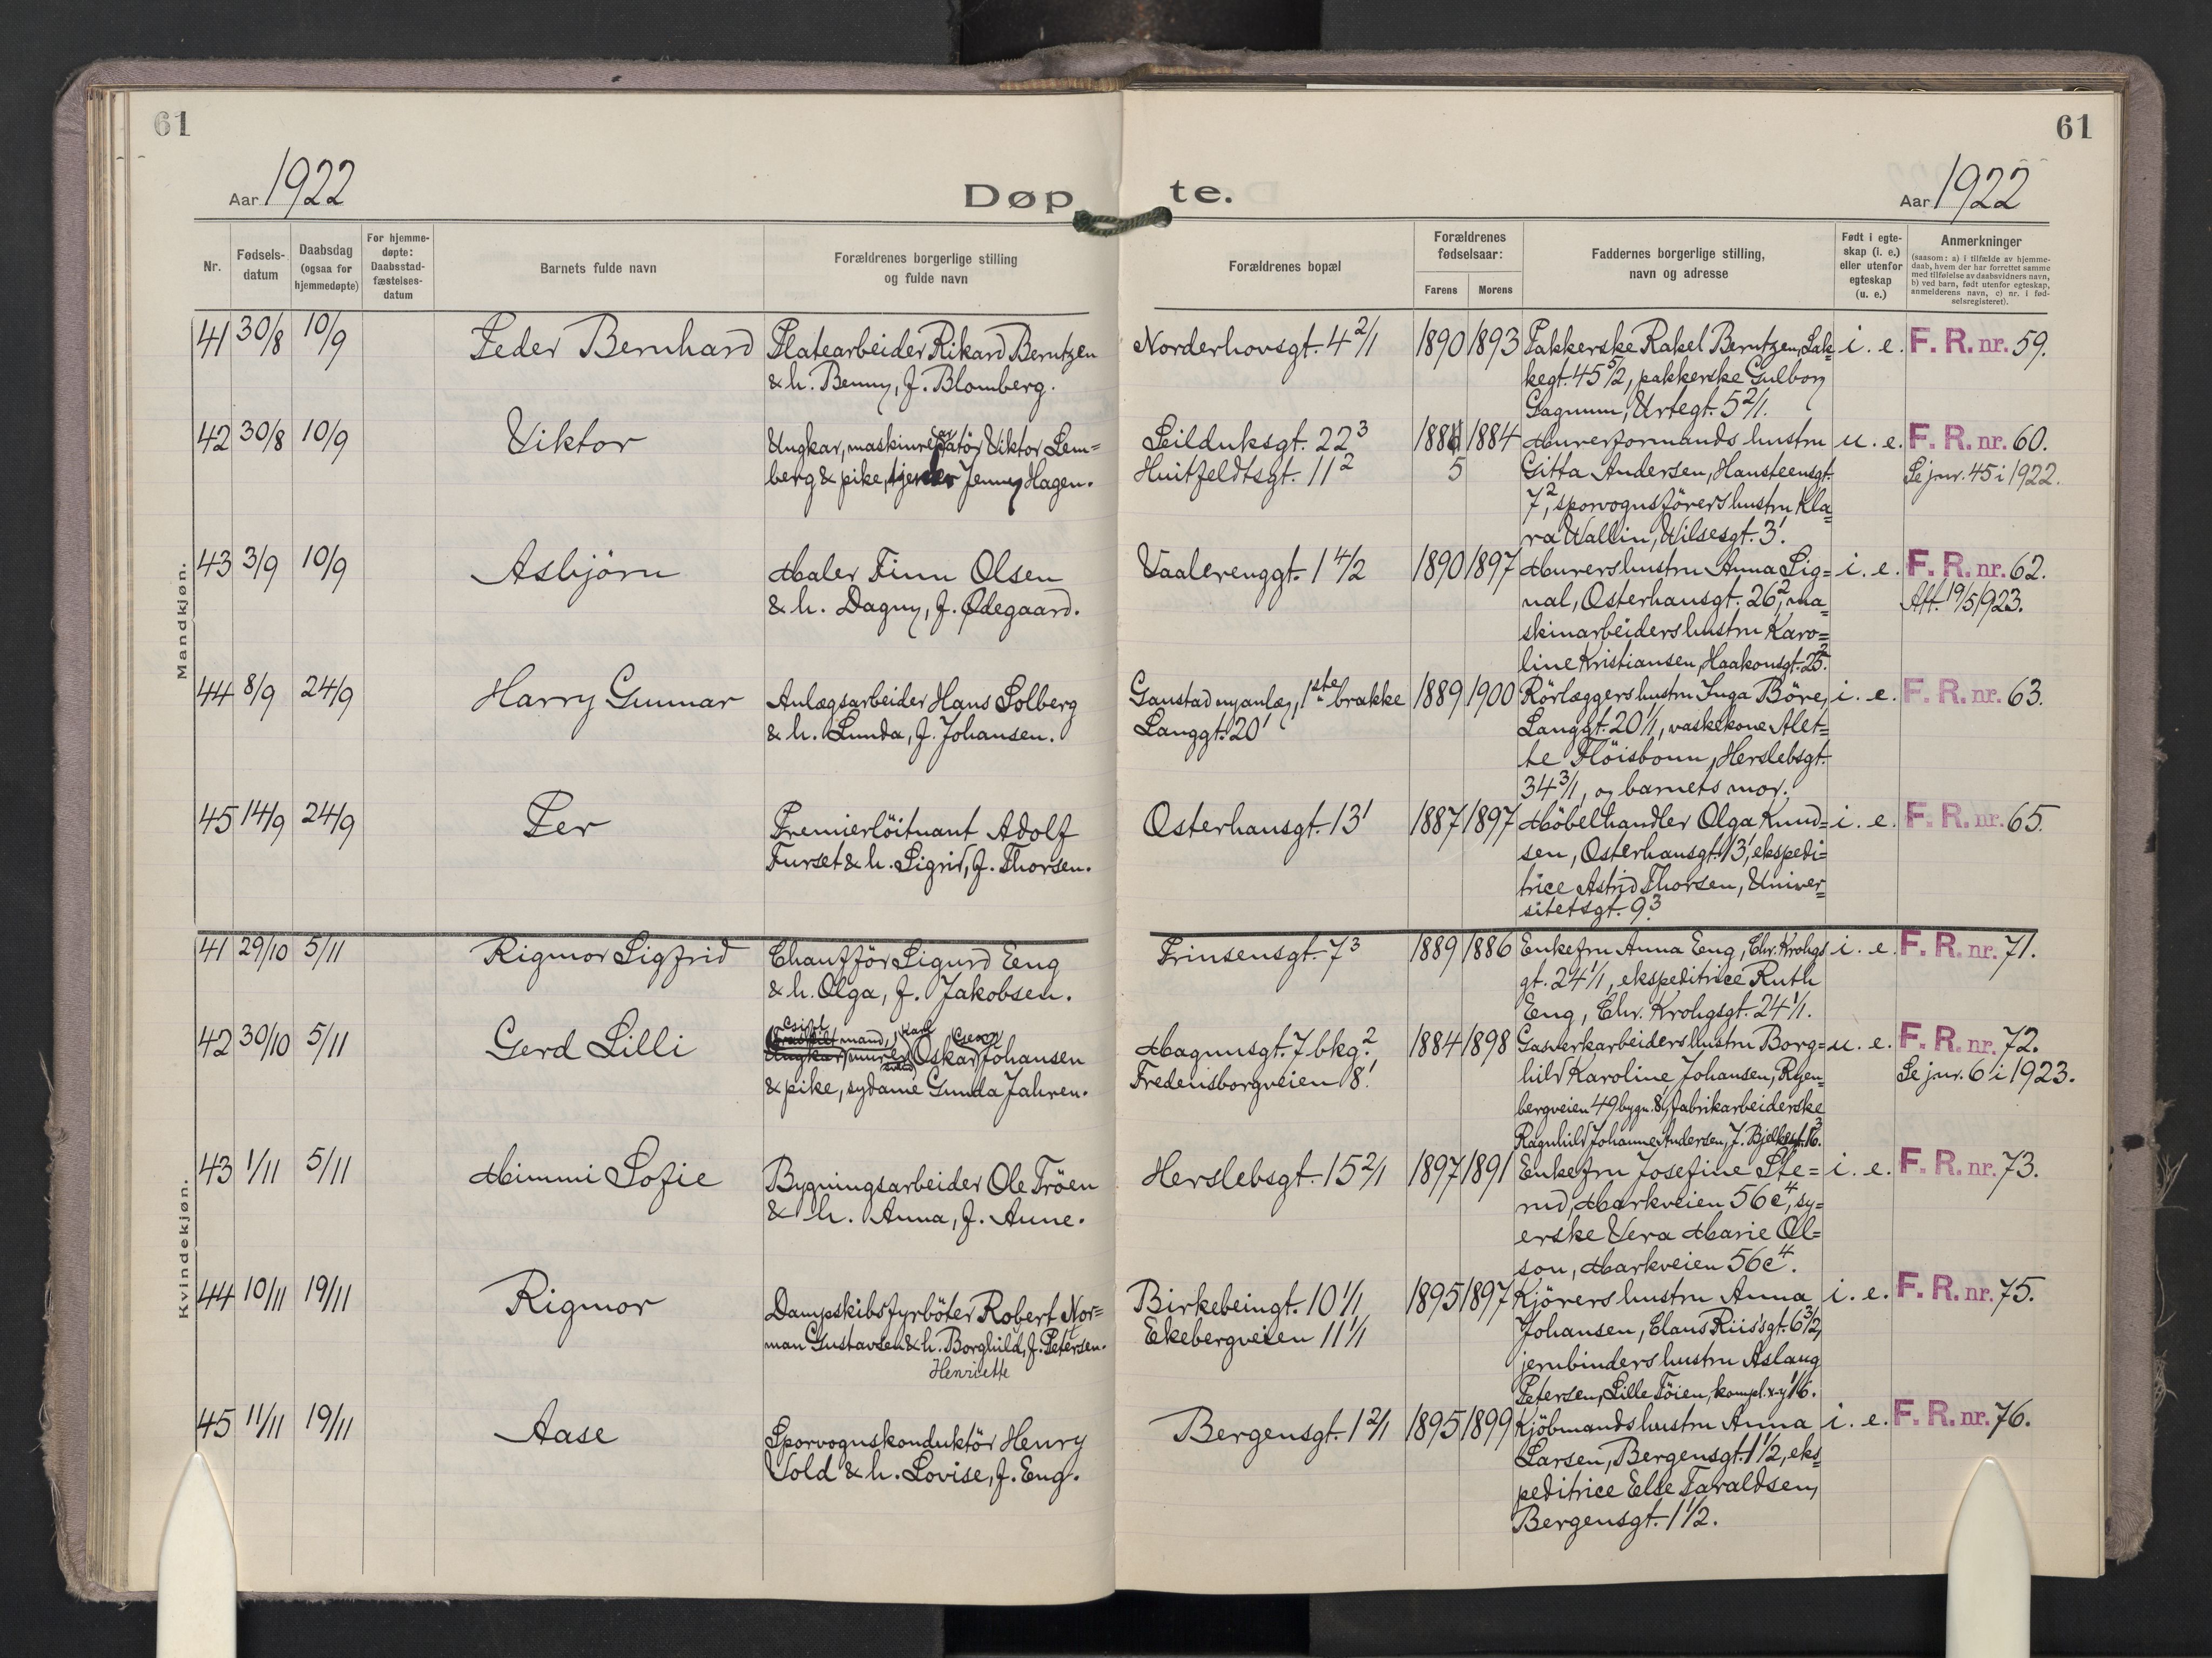 61
61
Aar 1922
Døp
te.
Aar 1922
Nr.
Fødsels-
datum
Daabsdag
(ogsaa for
hjemmedøpte)
For hjemme-
døpte:
Daabsstad-
fæstelses-
datum
Barnets fulde navn
Forældrenes borgerlige stilling
og fulde navn
Forældrenes bopæl
Forældrenes
fødselsaar:
Farens
Morens
Faddernes borgerlige stilling,
navn og adresse
Født i egte-
skap (i. e.)
eller utenfor
egteskap
(u. e.)
Anmerkninger
(saasom: a) i tilfælde av hjemme-
daab, hvem der har forrettet samme
med tilføielse av daabsvidners navn,
b) ved barn, født utenfor egteskap,
anmelderens navn, c) nr. i fød-
selsregisteret).
Mandkjøn.
41 30/8 10/9 Peder Bernhard
Platearbeider Rikard Berntzen
& h. Benny, f. Blomberg.
Norderhovsgt. 4 2/1
1890 1893
Pakkerske Rakel Berntzen, Lak-
kegt. 45 5/2, pakkerske Gulborg
Gagnum, Urtegt. 5 2/1.
i. e. F. R. nr. 59.
42 30/8 10/9 Viktor
Ungkar, maskinreparatör Viktor Lem=
berg & pike, Jenny Hagen.
Seilduksgt. 22³
Huitfeldtsgt. 11²
1884 1884
5
Murerformands hustru
Gitta Andersen, Hansteensgt.
7², sporvognsförers hustru Kla=
ra Wallin, Wilsesgt. 3¹.
u. e. F. R. nr. 60.
Se jnr. 45 i 1922.
43 3/9 10/9 Asbjörn
Maler Finn Olsen
& h. Dagny, f. Ødegaard.
Vaalerenggt. 1 4/2
1890 1897
Murers hustru Anna Sig=
nal, Osterhausgt. 26², ma=
skinarbeiders hustru Karo=
line Kristiansen, Haakonsgt. 25².
i. e. F. R. nr. 62.
Att. 19/5 1923.
44 8/9 24/9 Harry Gunnar
Anlægsarbeider Hans Solberg
& h. Lunda, f. Johansen.
Gaustad nyanlæg, 1ste brakke
Langgt. 20¹
1889 1900
Rörlæggers hustru Inga Böre,
Langgt. 20 1/1, vaskekone Alet=
te Flöisbonn, Herslebsgt.
34 3/1, og barnets mor.
i. e. F. R. nr. 63.
45 14/9 24/9 Per
Premierlöitnant Adolf
Furset & h. Sigrid, f. Thorsen.
Osterhausgt. 13¹
1887 1897
Möbelhandler Olga Knud=
sen, Osterhausgt. 13¹, ekspedi=
trice Astrid Thorsen, Univer=
sitetsgt. 9³.
i. e. F. R. nr. 65.
Kvindekjøn.
41 29/10 5/11 Rigmor Sigfrid
Chafför Sigurd Eeng
& h. Olga, f. Jakobsen.
Prinsensgt. 7³
1889 1886
Enkefru Anna Eeng, Chr. Krohgs
gt. 24 1/1, ekspeditrice Ruth
Eeng, Chr. Krohgsgt. 24 1/1.
i. e. F. R. nr. 71.
42 30/10 5/11 Gerd Lilli
mand, Karl Georg
Ungkar, murer Oskar Johansen
& pike, sydame Gunda Jahren.
Magnusgt. 7 bkg.²
Fredensborgveien 8¹.
1884 1898
Gasverkarbeiders hustru Borg=
hild Karoline Johansen, Ryen=
bergveien 49 bygn. 8, fabrikarbeiderske
Ragnhild Johanne Andersen, J. Bjelkesgt. 16³.
u. e. F. R. nr. 72.
Se jnr. 6 i 1923.
43 1/11 5/11 Mimmi Sofie
Bygningsarbeider Ole Tröen
& h. Anna, f. Aune.
Herslebsgt. 15 2/1
1897 1891
Enkefru Josefine Ste=
rud, Markveien 56c⁴, sy=
erske Vera Marie Ol=
son, Markveien 56c⁴.
i. e. F. R. nr. 73.
44 10/11 19/11 Rigmor
Dampskibsfyrböter Robert Nor=
man Gustavsen & h. Borghild, f. Petersen.
Henriette
Birkebeingt. 10 1/1
Ekebergveien 11 1/1
1895 1897
Kjörers hustru Anna
Johansen, Claus Riis's gt. 6 3/2,
jernbinders hustru Aslaug
Petersen, Lille Töien, kompl. x-y 1/6.
i. e. F. R. nr. 75.
45 11/11 19/11 Aase
Sporvognskonduktör Henry
Vold & h. Lovise, f. Eng.
Bergensgt. 1 2/1
1895 1899
Kjöbmands hustru Anna
Larsen, Bergensgt. 1 1/2, eks=
peditrice Else Taraldsen,
Bergensgt. 1 1/2.
i. e. F. R. nr. 76.